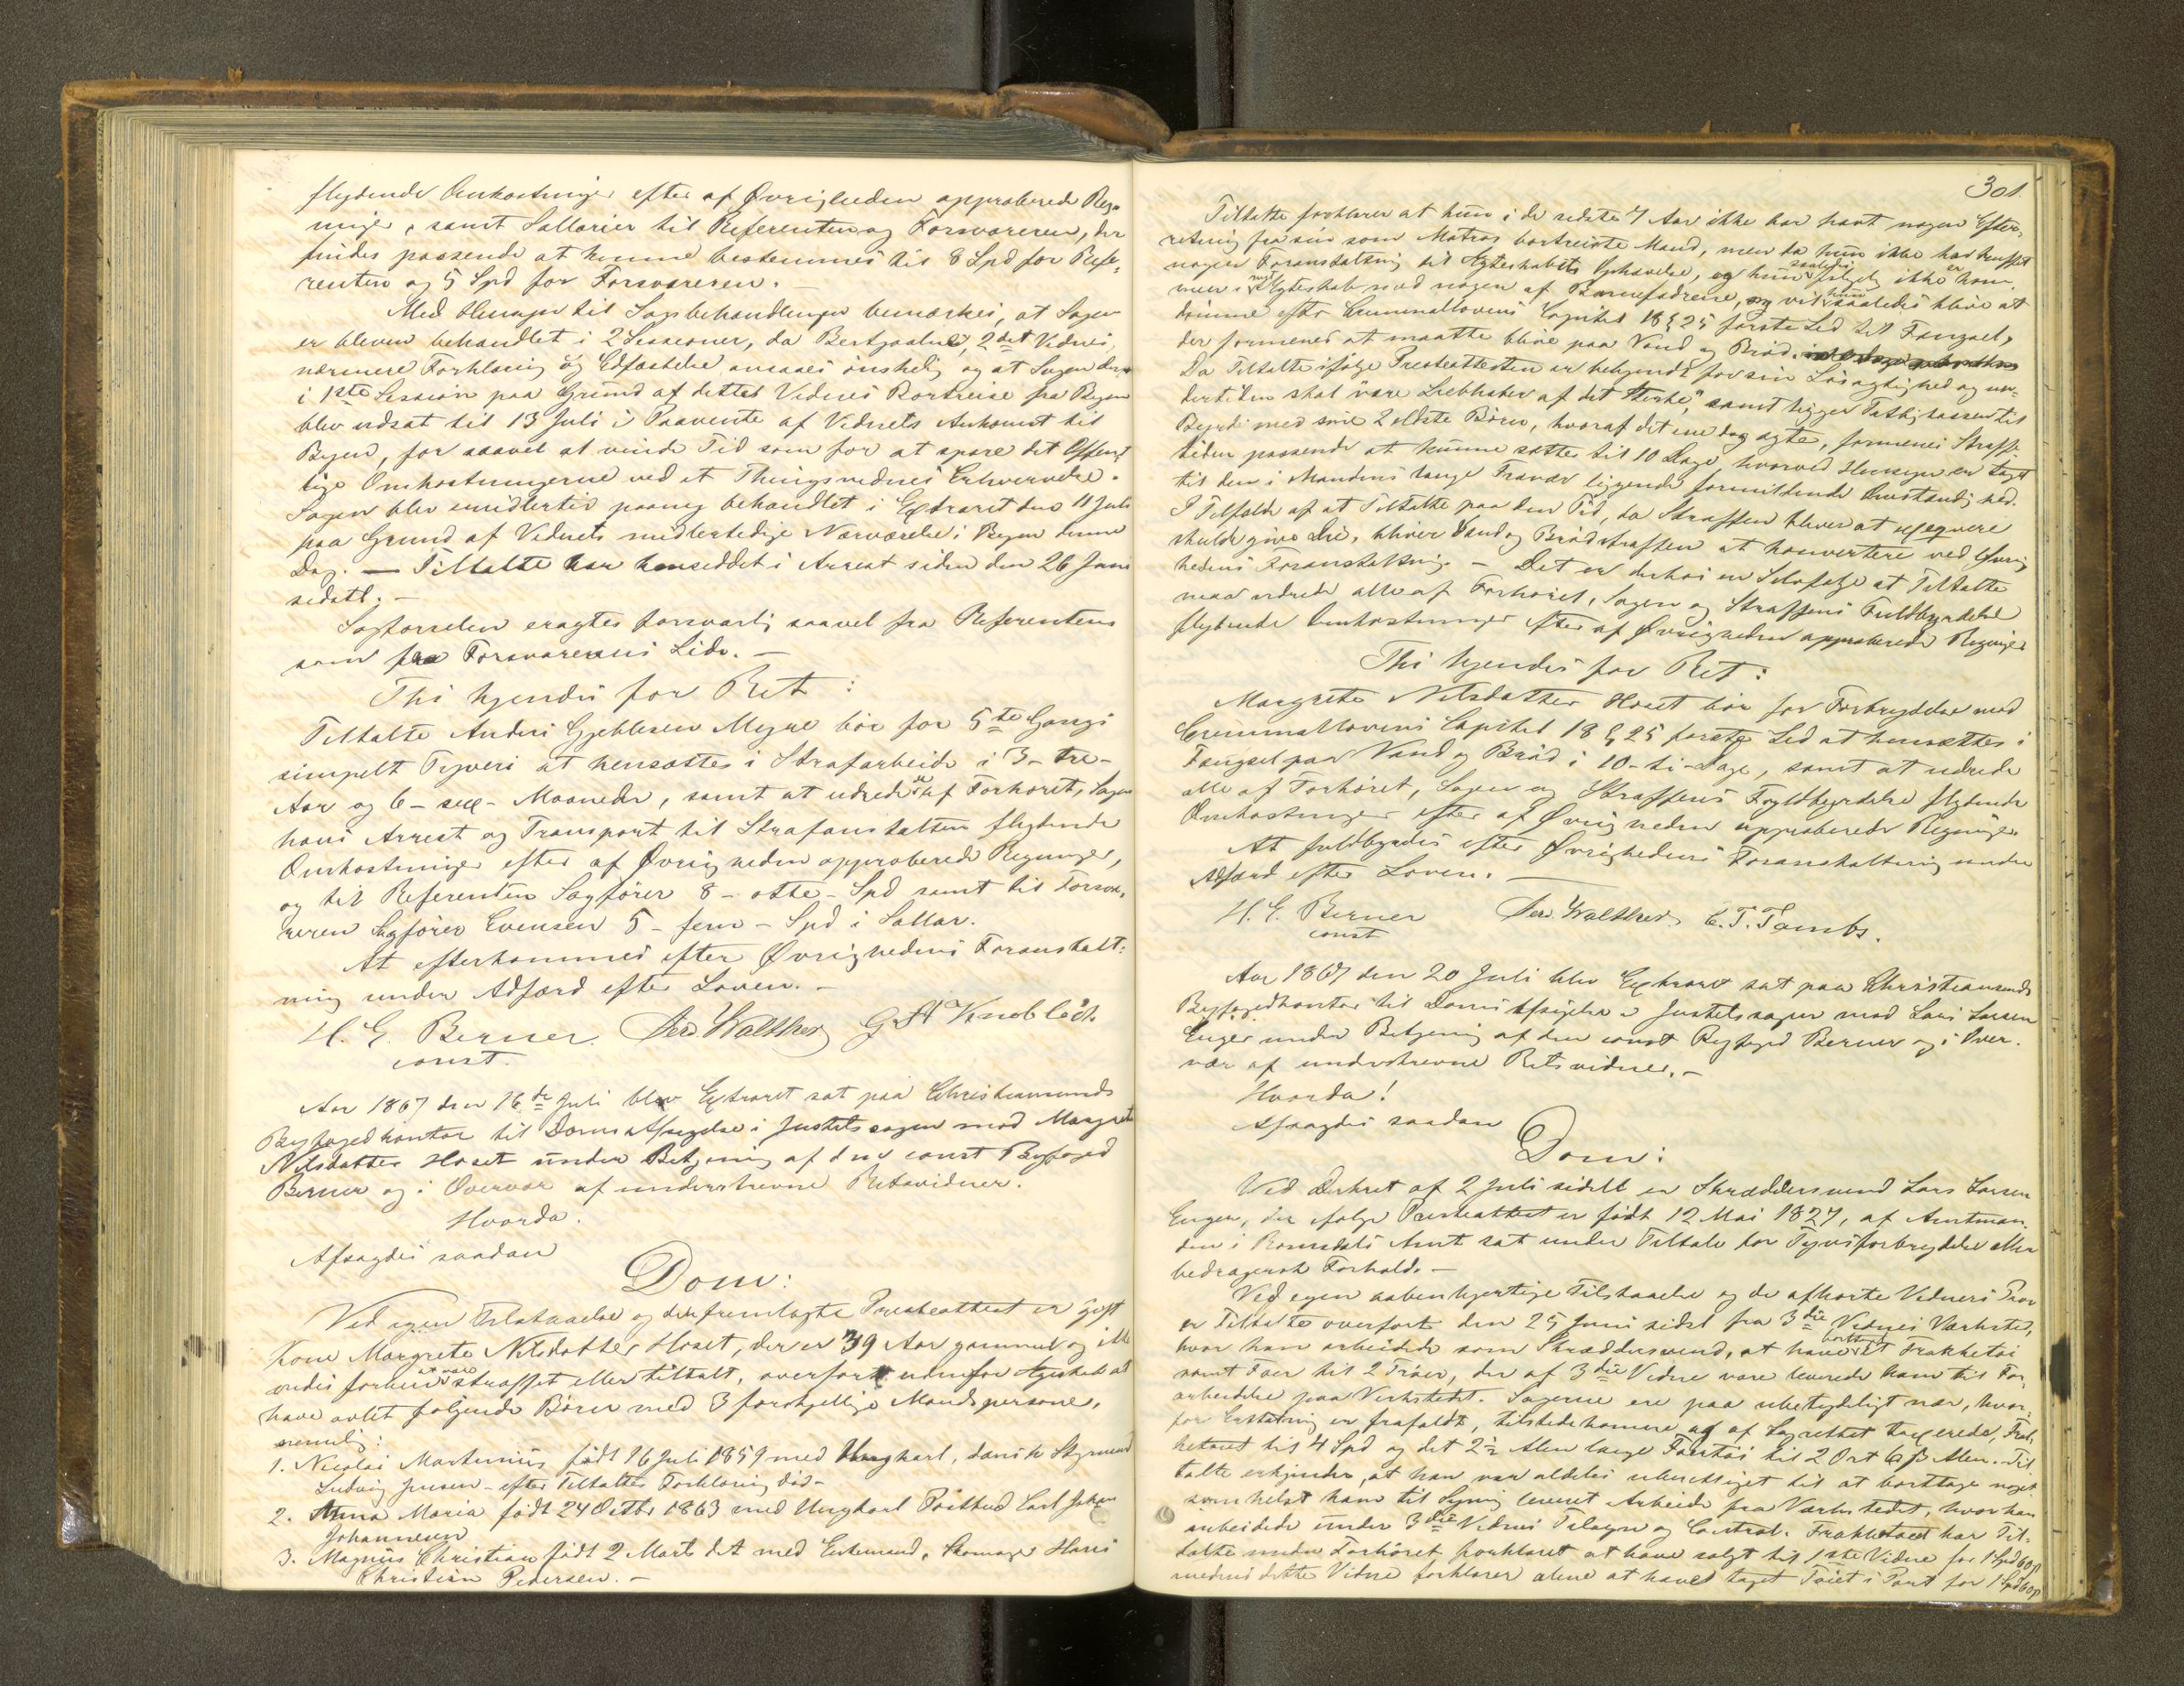 flydende Omkostninger efter af Øvrigheden approberede Reg-
ninger, samt Sallarier til Referenten og Forsvareren, der
findes passende at kunne bestemmes til 8 Spd for Refe-
renten og 5 Spd for Forsvareren.
Med Hensyn til Sagsbehandlingen bemærkes, at Sagen
er bleven behandlet i 2 Sessioner, da Bestjaalnes, 2det Vidnes,
nærmere Forklaring og Edfæstelse ansaaes ønskelig og at Sagen
i 1ste Session paa Grund af dettes Vidnes Bortreise fra Byen
blev udsat til 13 Juli i Paavente af Vidnets Ankomst til
Byen, for saavel at vinde Tid som for at spare det Offent-
lige Omkostningerne ved et Thingsvidnes Erhvervelse.
Sagen blev imidlertid paany behandlet i Extraret den 11 Juli
paa Grund af Vidnets midlertidige Nærværelse i Byen denne
Dag. — Tiltalte har henseddet i Arrest siden den 26 Juni
sidstl. —
Sagførselen eragtes forsvarlig saavel fra Referentens
som fra Forsvarerens Side. —
Thi kjendes for Ret:
Tiltalte Anders Gjeblesen Megne bør for 5te Gangs
simpelt Tyveri at hensættes i Strafarbeide i 3 - tre -
Aar og 6 - sex - Maaneder, samt at udrede de af Forhøret, Sagen
hans Arrest og Transport til Strafanstalten flydende
Omkostninger efter af Øvrigheden approberede Regninger,
og til Referenten Sagfører 8 - otte - Spd samt til Forsva-
reren Sagfører Evensen 5 - fem - Spd i Sallar.
At efterkommes efter Øvrighedens Foranstalt-
ning under Adfærd efter Loven. —
H. G. Berner Ser. Walther G A Knobloch
const.
Aar 1867 den 16de Juli blev Extraret sat paa Christiansunds
Byfogedkontor til Doms Afsigelse i Justitssagen mod Margrete
Nilsdatter Hoset under Betjening af den const Byfoged
Berner og i Overvær af underskrevne Retsvidner.
Hvorda.
Afsagdes saadan
Dom:
Ved egen Tilstaaelse og den fremlagte Presteattest er gift
Kone Margrete Nilsdatter Hoset, der er 39 Aar gammel og ikke
vides forhen at være straffet eller tiltalt, overført udenfor Ægteskab at
have avlet følgende Børn med 3 forskjellige Mandspersoner,
nemlig:
1. Nicolai Martinius født 16 Juli 1859 med Ungkarl, dansk Styrmand
Ludvig Jensen - efter Tiltaltes Forklaring død -
2. Anna Maria født 24 Octbr 1863 med Ungkarl Postbud Carl Johan
Johannesen
3. Magnus Christian født 2 Marts d.A. med Enkemand, Skomager Hans
Christian Pedersen. —
301.
Tiltalte forklarer at hun i de sidste 7 Aar ikke har havt nogen Efter-
retning fra sin som Matros bortreiste Mand, men da hun ikke har havt
nogen Foranstaltning til Ægteskabets Ophævelse, og hun saaledes følgelig ikke er kom-
men i nyt Ægteskab med nogen af Barnefædrene, vil hun saaledes blive at
dømme efter Criminallovens Capitel 18 § 25 første Led til Fængsel,
der formenes at maatte blive paa Vand og Brød.
Da Tiltalte ifølge Presteattesten er bekjendt for sin Løsagtighed og un-
dertiden skal være Liebhaber af det "Sterke", samt ligger Fattigvæsenet til
Byrde med sine 2 ældste Børn, hvoraf det ene dog ægte, formenes Straffe-
tiden passende at kunne sættes til 10 Dage hvorved Hensyn er tagt
til den i Mandens lange Fravær liggende formildende Omstændighed.
I Tilfælde af at Tiltalte paa den Tid, da Straffen bliver at exeqvere
skulde give Die, bliver Vand og Brødstraffen at konvertere ved Øvrig-
hedens Foranstaltning. — Det er derhos en Selvfølge at Tiltalte
maa udrede alle af Forhøret, Sagen og Straffens Fuldbyrdelse
flydende Omkostninger efter af Øvrigheden approberede Regninger
Thi kjendes for Ret:
Margrete Nilsdatter Hoset bør for Forbrydelse mod
Criminallovens Capitel 18 § 25 første Led at hensættes i
Fængsel paa Vand og Brød i 10 - ti - Dage, samt at udrede
alle af Forhøret, Sagen og Straffens Fuldbyrdelse flydende
Omkostninger efter af Øvrigheden approberede Regninger.
At fuldbyrdes efter Øvrighedens Foranstaltning under
Adfærd efter Loven. —
H. G. Berner Ser. Walther C. T. Tambs.
const
Aar 1867 den 20 Juli blev Extraret sat paa Christiansunds
Byfogedkontor til Doms Afsigelse i Justitssagen mod Lars Larsen
Engen under Betjening af den const Byfoged Berner og i Over-
vær af underskrevne Retsvidner. —
Hvorda!
Afsagdes saadan
Dom:
Ved Dekret af 2 Juli sidstl er Skræddersvend Lars Larsen
Engen, der ifølge Presteattest er født 12 Mai 1827, af Amtman-
den i Romsdals Amt sat under Tiltale for Tyvsforbrydelse eller
bedragersk Forhold. —
Ved egen aabenhjertige Tilstaaelse og de afhørte Vidners Prov
er Tiltalte overført den 25 Juni sidstl fra 3die Vidnes Værksted,
hvor han arbeidede som Skræddersvend, at have borttaget et Frakketøi
samt Foer til 2 Trøier, der af 3die Vidne vare leverede ham til For-
arbeidelse paa Verkstedet. Sagerne ere paa ubetydeligt nær, hvor-
for Erstatning er frafaldt, tilstedekomne og af Lagrettet taxerede, Frak-
ketøiet til 4 Spd og det 2½ Alen lange Foertøi til 2 Ort 6 ß Alen. Til-
talte erkjender, at han var aldeles uberettiget til at borttage noget
somhelst ham til Syning leveret Arbeide fra Værkstedet, hvor han
arbeidede under 3die Vidnes Tilsyn og Control. Frakketøiet har Til-
talte under Forhøret forklaret at have solgt til 1ste Vidne for 1 Spd 60 ß
medens dette Vidne forklarer alene at have taget Tøiet i Pant for 1 Spd 60 ß